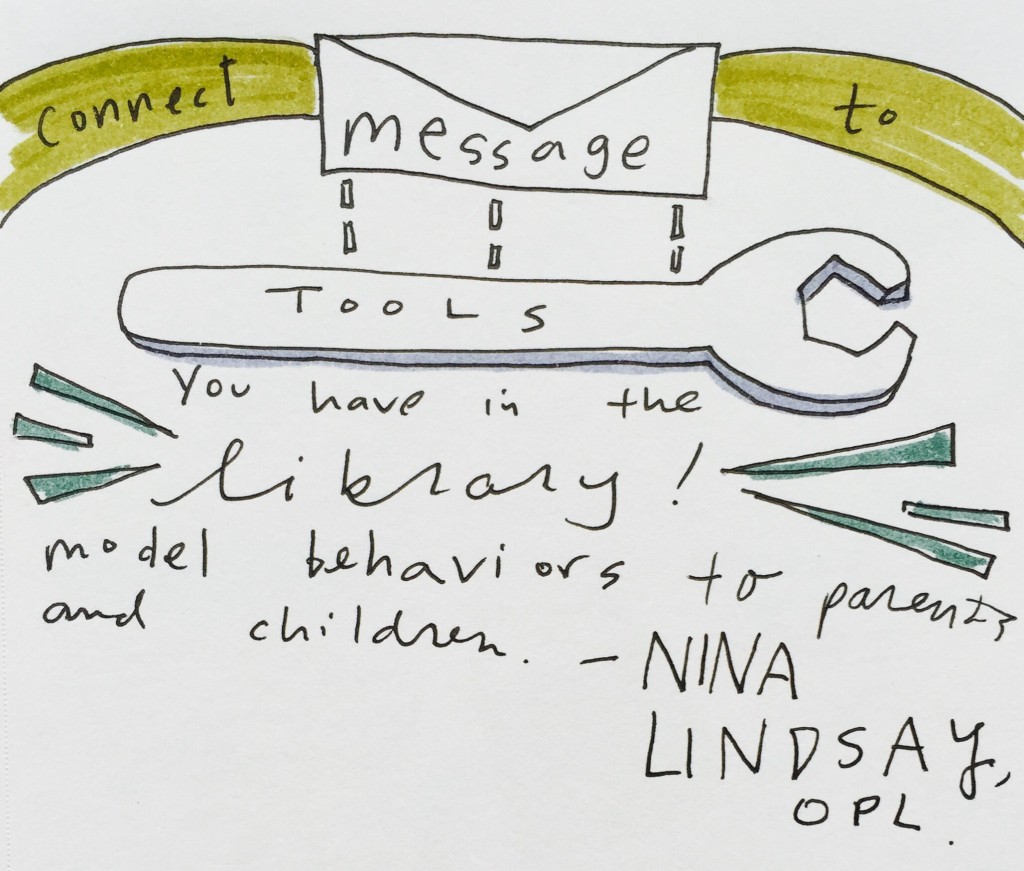 connect message to
TOOLS
you have in the
library!
model behaviors to parents
and children. - NINA
LINDSAY,
OPL.